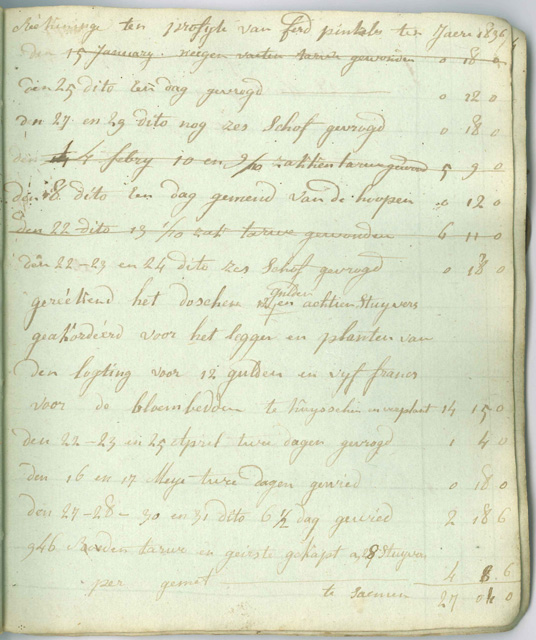 Rekeninge ten profyte van ferd pinkels ten Jaere 1836
den 15 January negen vaten tarwe gewonden 0 18 0
den 25 dito een dag gevrogd 0 12 0
den 27 en 29 dito nog zes Schof gevrogd 0 18 0
den 4 febry 10 en 9/10 zakken tarwe gewond 5 9 0
den 18 dito een dag gemend van de hoopen 0 12 0
den 22 dito 13 1/10 zak tarwe gewonden 6 11 0
den 22-23 en 24 dito zes Schof gevrogd 0 18 0
gerekend het doschen gulden en achtien Stuyvers
geakordeerd voor het leggen en planten van
den lopting voor 12 gulden en vyf francs
voor de bloembedden te en verplant 14 15 0
den 22-23 en 25 April twee dagen gevrogd 1 4 0
den 16 en 17 Meye twee dagen gewied 0 18 0
den 27-28-30 en 31 dito 6 1/2 dag gewied 2 18 6
946 Roeden tarwe en geirste gekapt a 8 Stuyvers
per gemet 4 8 6
te saemen 27 0